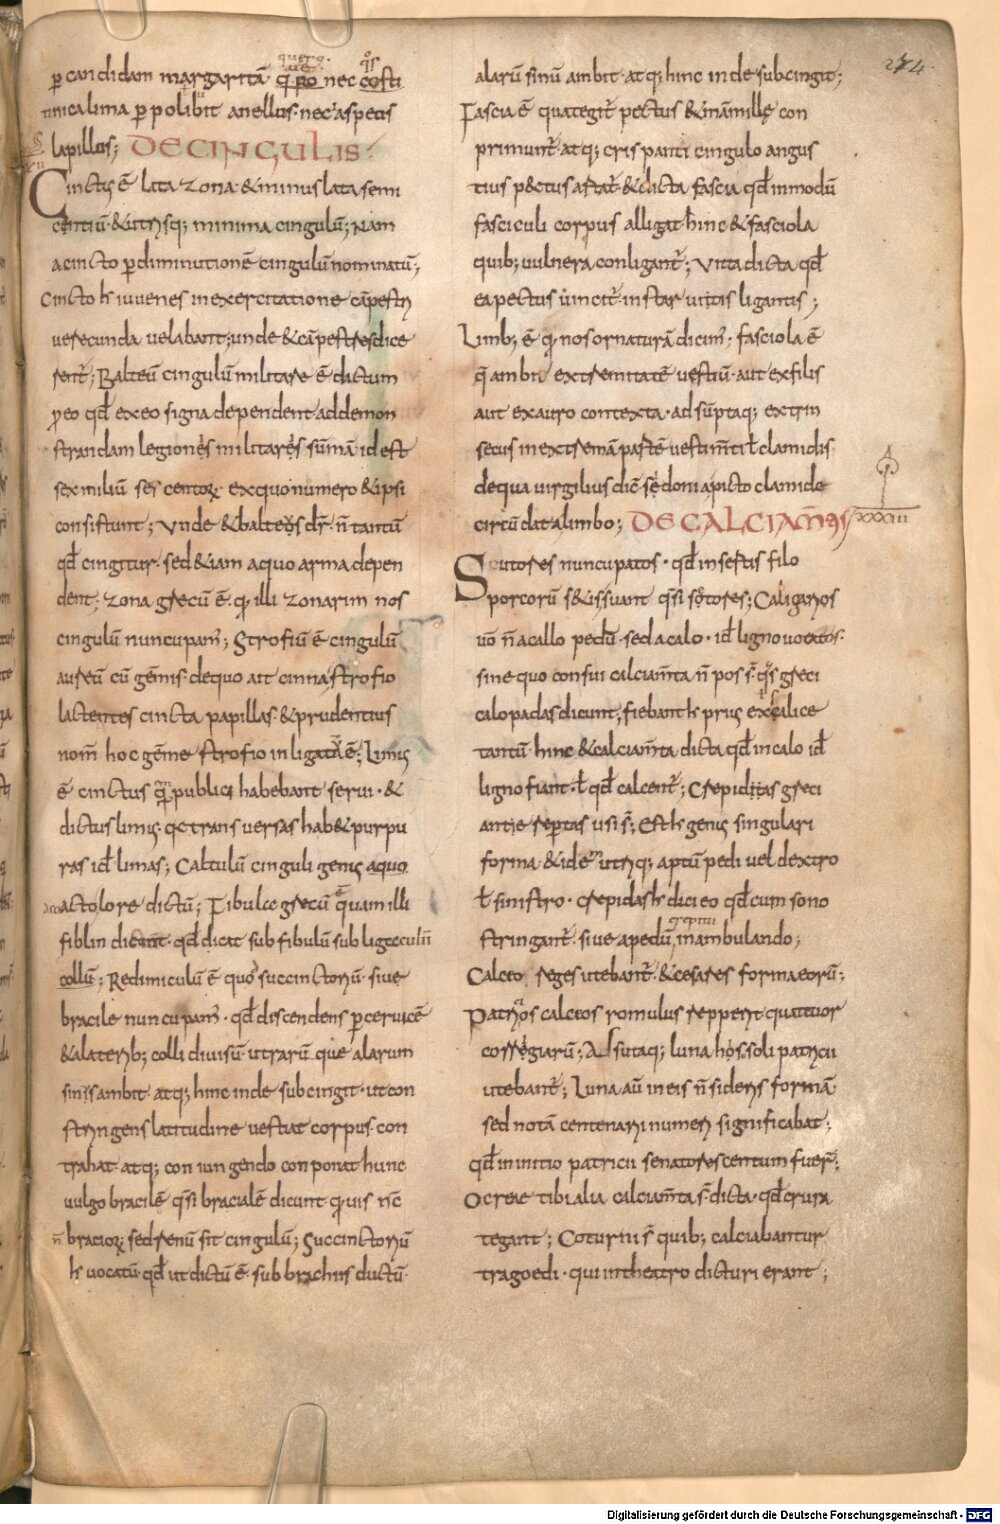 274.
p̄ candidam margaritā q̄ ro nec costi
nnica lima p̄ polibit anellus· nec aspeus
lapillus; DE CINGULIS·
Cinctus ē lata zona· & minus lata semi
centiū· & utrisq; minima cingulū; Nam
a cincto p̄ diminutionē cingulū nominatū;
Cincto h̄ iuuenes in exercitatione cāpestri
uerecunda uelabant; unde & cāpestres dice
rent̄; Balteū cingulū militare ē dictum
p̄eo qđ ex eo signa dependent ad demon
strandam legionis militaris sūmā id est
sex miliū sescentorꝝ ex quo numero & ipsi
consistunt; Vnde & balteus dr̄· n̄ tantū
qđ cingitur· sed & iam a quo arma depen
dent; Zona grecū ē· q̨ illi zonarim nos
cingulū nuncupam̄; Strofiū ē cingulū
aureū cū gēmis· de quo ait cinna strofio
lactentes cincta papillas· & prudentius
nom̄ hoc gēme strofio in ligatā ē; Limus
ē cinctus quē publici habebant serui· &
dictus limus· qa transuersas hab& purpu
ras id ē limas; Caltulū cinguli genus a quo
actolore dictū; Fibulæ grecū ē quam illi
fiblin dicunt· qđ dicat subfibulū subligaculū
collū; Redimiculū ē quo succinctoriū· siue
bracile nuncupam̄· qđ discendens p̄ ceruicē
& a laterib; colli diuisū utrarū que alarum
sinus ambit· atq; hinc inde subcingit· ut con
stringens latitudine uestiat corpus· con
trahat· atq; coniungendo conponat hunc
uulgo bracilē· q̄si bracialē dicunt· q̨uis nc̄
n̄ braciorꝝ sed renū sit cingulū; Succinctoriū
h̄ uocatū qđ ut dictū ē· sub brachiis ductū·
alarū sinū ambit· atq; hinc inde subcingit;
Fascia ē qua tegit̄ pectus & mamille con
primunt̄· atq; crispanti cingulo angus
tius p&ctus artat̄· & dicta fascia qđ in modū
fasciculi corpus alligat· hinc & fasciola
quib; uulnera conligant̄; Vitta dicta qđ
ea pectus uincit̄ instar uitis ligantis;
Limb; ē q̨ nos ornaturā dicim̄; fasciola ē
q̄ ambit extremitatē uestiū· aut ex filis
aut ex auro contexta· adsūptaq; extrin
secus in extremā partē uestim̄ti ł clamidis·
de qua uirgilius dic̄ sidoni a picto clamide
circūdat a limbo; DE CALCIAM̄TIS XXXIII
Sutores nuncupatos· qđ insertis filo
porcorū s&is suant q̄si s&ores; Caligarios
uō n̄ a callo pedū· sed a calo· id ē ligno uocatos·
sine quo consui calciam̄ta n̄ pos s̄· q̄s greci
calopadas dicunt; fiebant h̄ prius ex salice
tantū· hinc & calciam̄ta dicta qđ in calo id ē
ligno fiant· ł qđ calcent̄; Crepiditas greci
ante reptas usi s̄; Est h̄ genus singulari
forma· & idē utriq; aptū pedi uel dextro
ł sinistro· crepidas h̄ dici eo qđ cum sono
stringant̄· siue a pedū crepitu in ambulando;
Calceo reges utebant̄· & cesares forma eorū;
Patricios calceos romulus repperit quattuor
corrigiarū; Adsutaq; luna hos soli patricii
utebant̄; Luna aū in eis n̄ sideris formā
sed notā centenarii numeri significabat·;
qđ in initio patricii senatores centum fuer̄;
Ocreae tibialia calciam̄ta s̄ dicta· qđ crura
tegant; Coturni s̄ quib; calciabantur
tragoedi· qui in theatro dicturi erant;
Digitalisierung gefördert durch die Deutsche Forschungsgemeinschaft - DFG